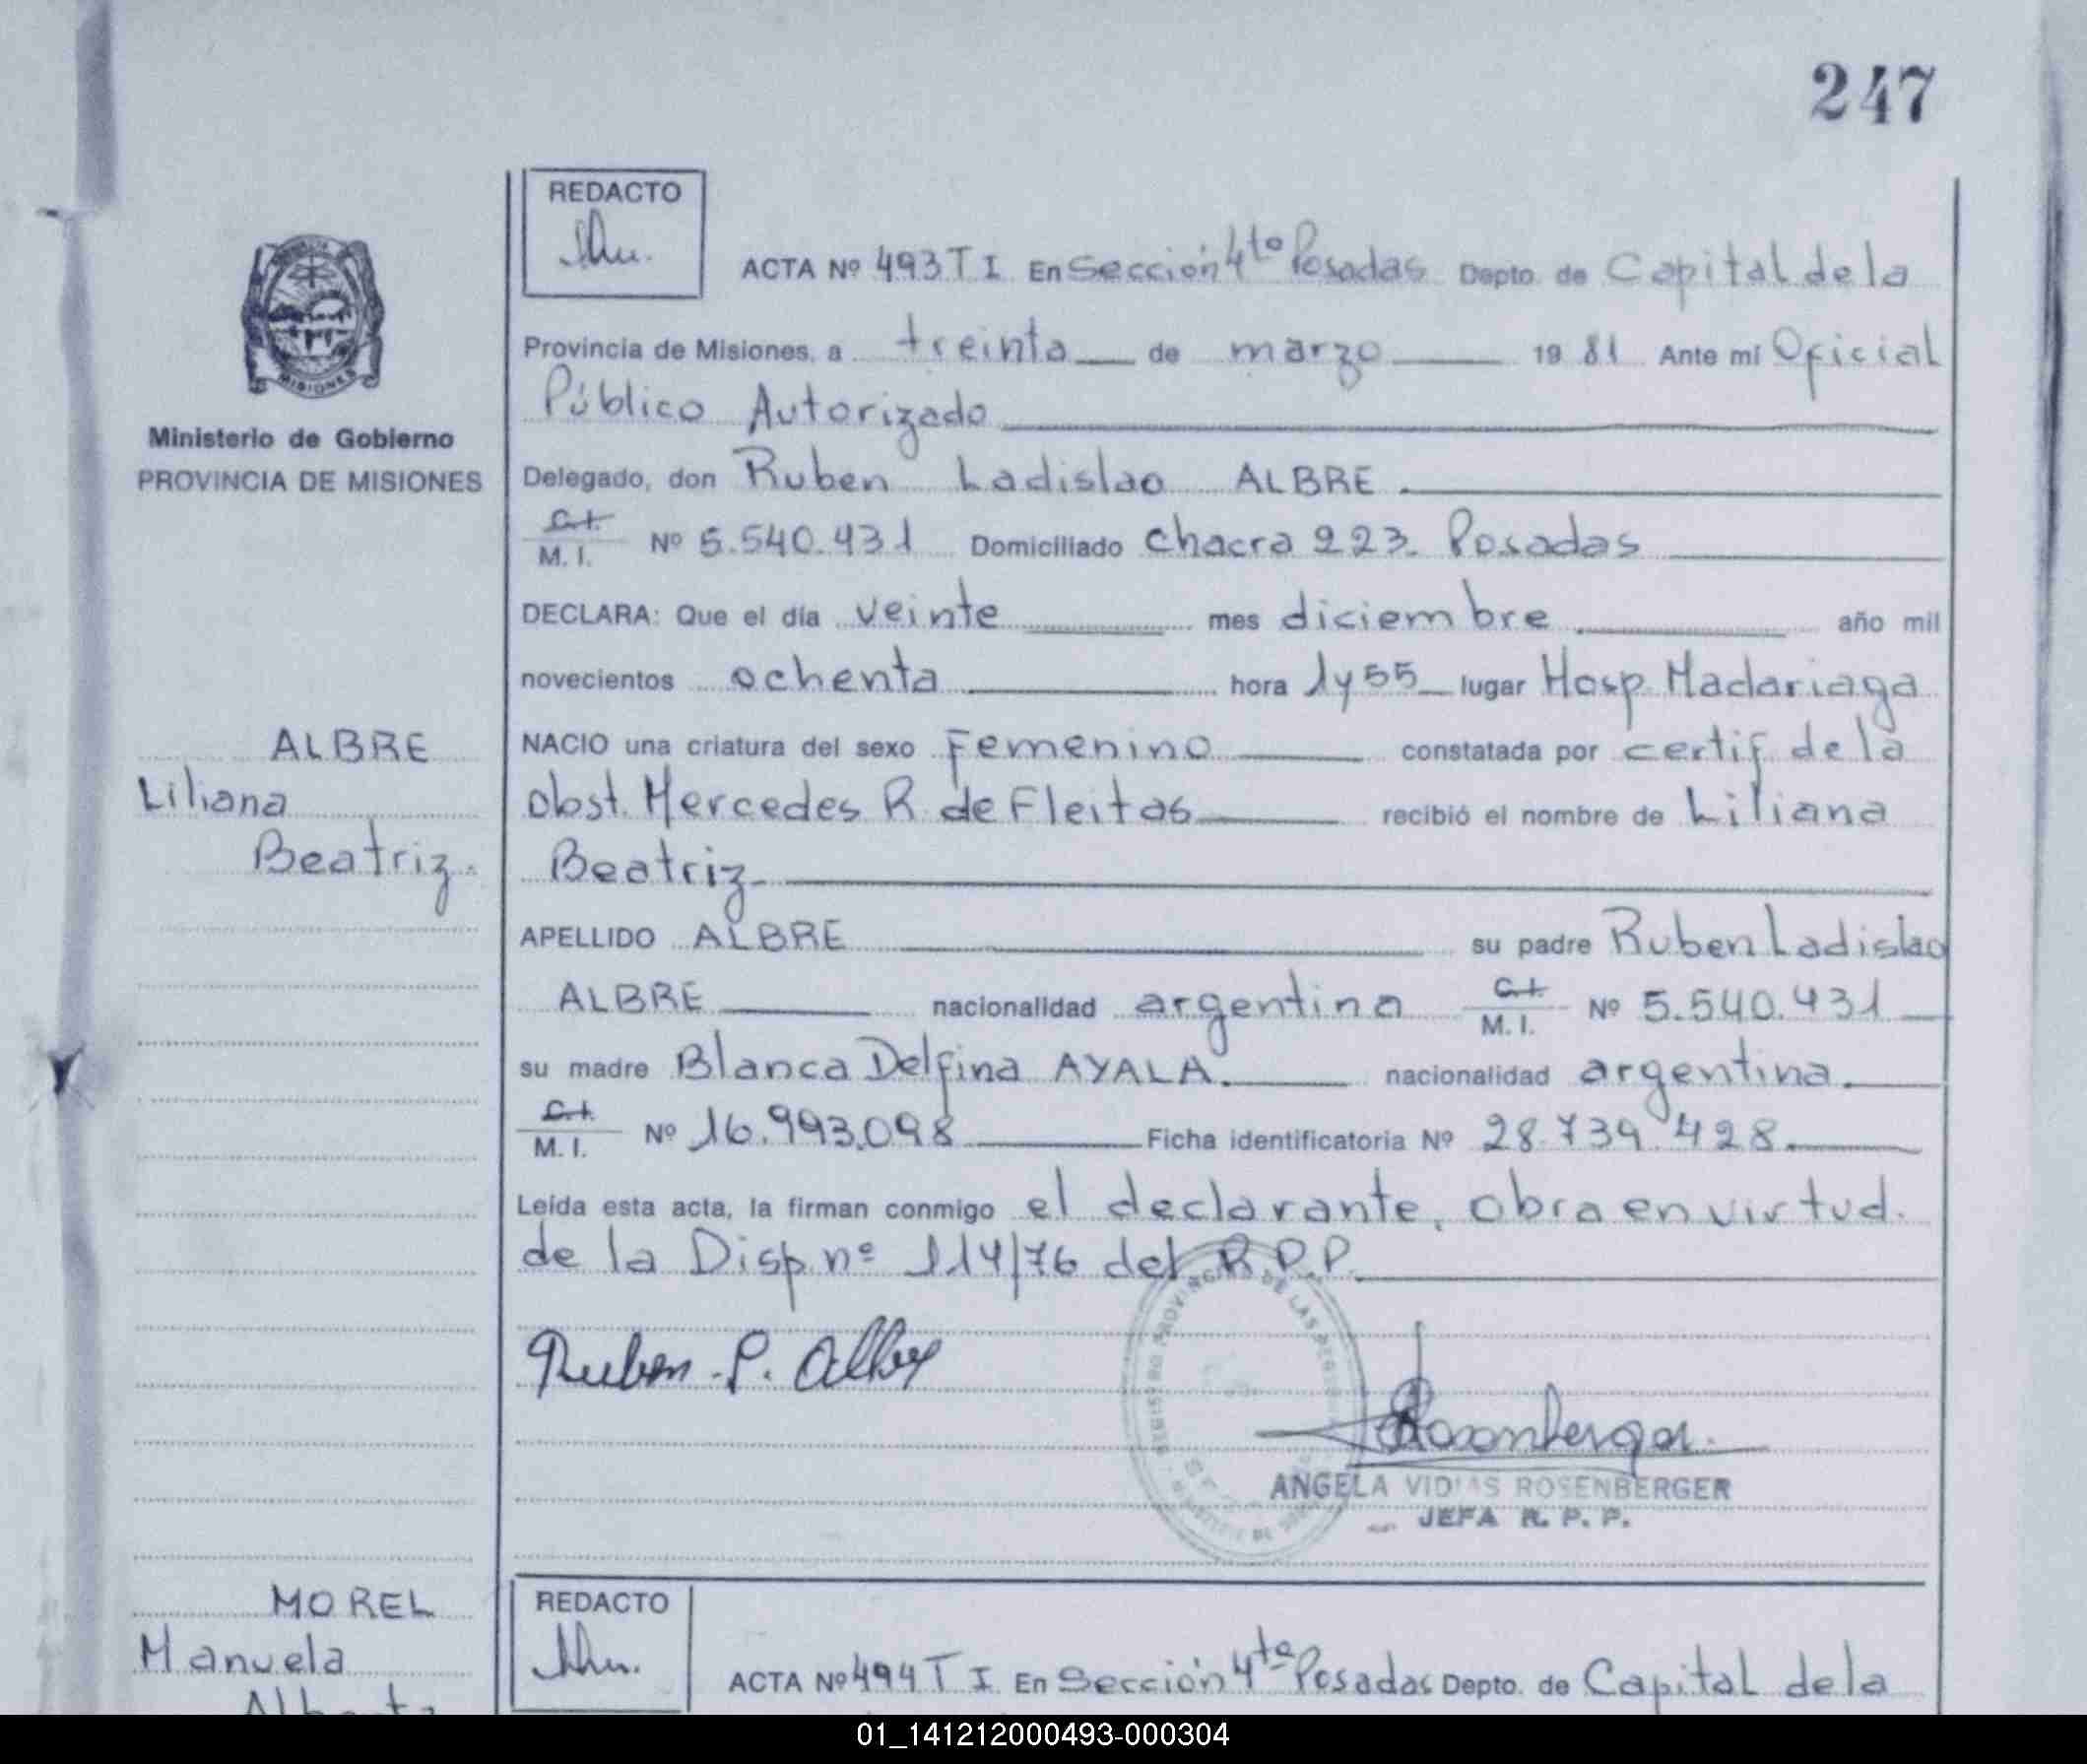 247
REDACTO
ACTA Nº 493 T I En Sección 4to Posadas Depto. de Capital de la
Provincia de Misiones, a treinta de marzo 1981 Ante mí Oficial
Público Autorizado
Delegado, don Ruben Ladislao ALBRE
C.I.
M. I. Nº 5.540.431 Domiciliado chacra 223. Posadas
DECLARA: Que el día veinte mes diciembre año mil
novecientos ochenta hora 1 y 55 lugar Hosp Madariaga
NACIO una criatura del sexo Femenino constatada por certif de la
obst. Mercedes R. de Fleitas recibió el nombre de Liliana
Beatriz
APELLIDO ALBRE su padre Ruben Ladislao
ALBRE nacionalidad argentina C.I. M. I. Nº 5.540.431
su madre Blanca Delfina AYALA. nacionalidad argentina.
C.I.
M. I. Nº 16.993.098 Ficha identificatoria Nº 28.739.428
Leída esta acta, la firman conmigo el declarante, obra en virtud.
de la Disp nº 114/76 del R.P.P.
Ruben
Rosenberger
ANGELA ROSENBERGER
JEFA R. P. P.
MISIONES
Ministerio de Gobierno
PROVINCIA DE MISIONES
ALBRE
Liliana
Beatriz.
MOREL
Manuela
REDACTO
ACTA Nº 494 T I En Sección 4ta Posadas Depto. de Capital de la
01_141212000493-000304